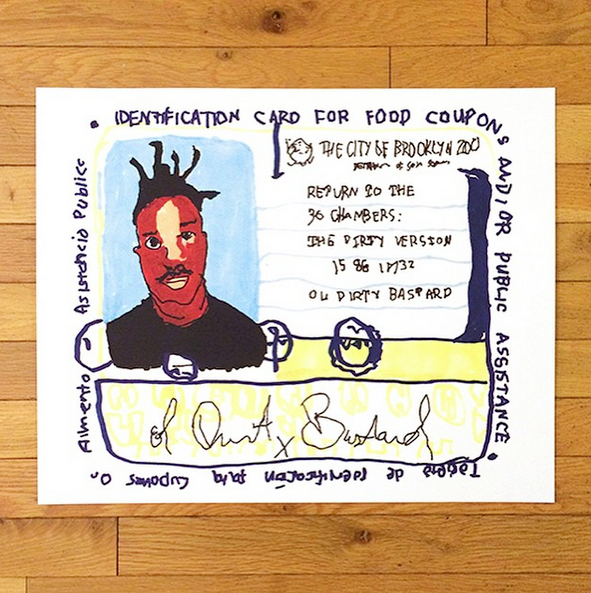 IDENTIFICATION CARD FOR FOOD COUPONS AND/OR PUBLIC ASSISTANCE
THE CITY OF BROOKLYN ZOO
RETURN TO THE
36 CHAMBERS:
THE DIRTY VERSION
15 86 1773Z
OL DIRTY BASTARD
ol Dirt x Bastard
de Identificación para Cupones o
Alimento Asistencia Publica